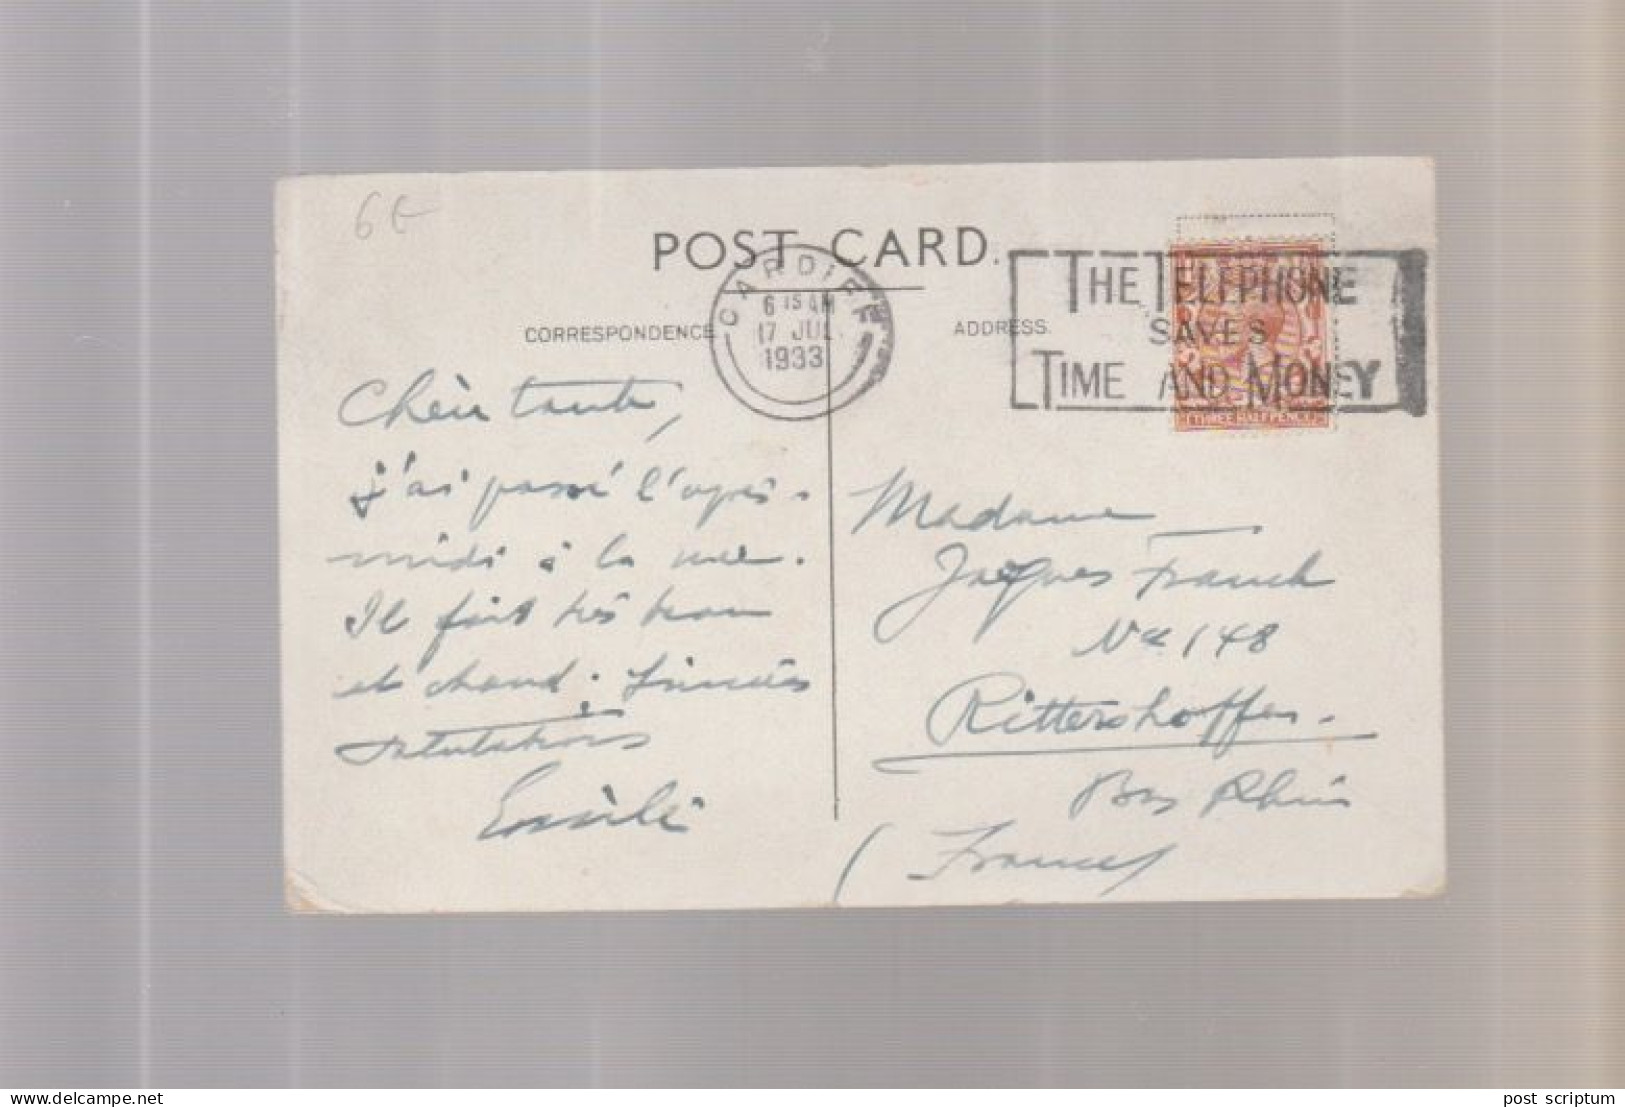 6€
POST CARD.
CARDIFF
6 15 AM
17 JUL.
1933
THE TELEPHONE
SAVES
TIME AND MONEY
THREE HALFPENCE
CORRESPONDENCE
ADDRESS.
Chère tante,
j'ai passé l'après-
midi à la mer.
Il fait très beau
et chaud. Sincères
salutations
Emilie
Madame
Jacques Franck
No 148
Rittershoffen.
Bas Rhin
(France)
www.delcampe.net
post scriptum